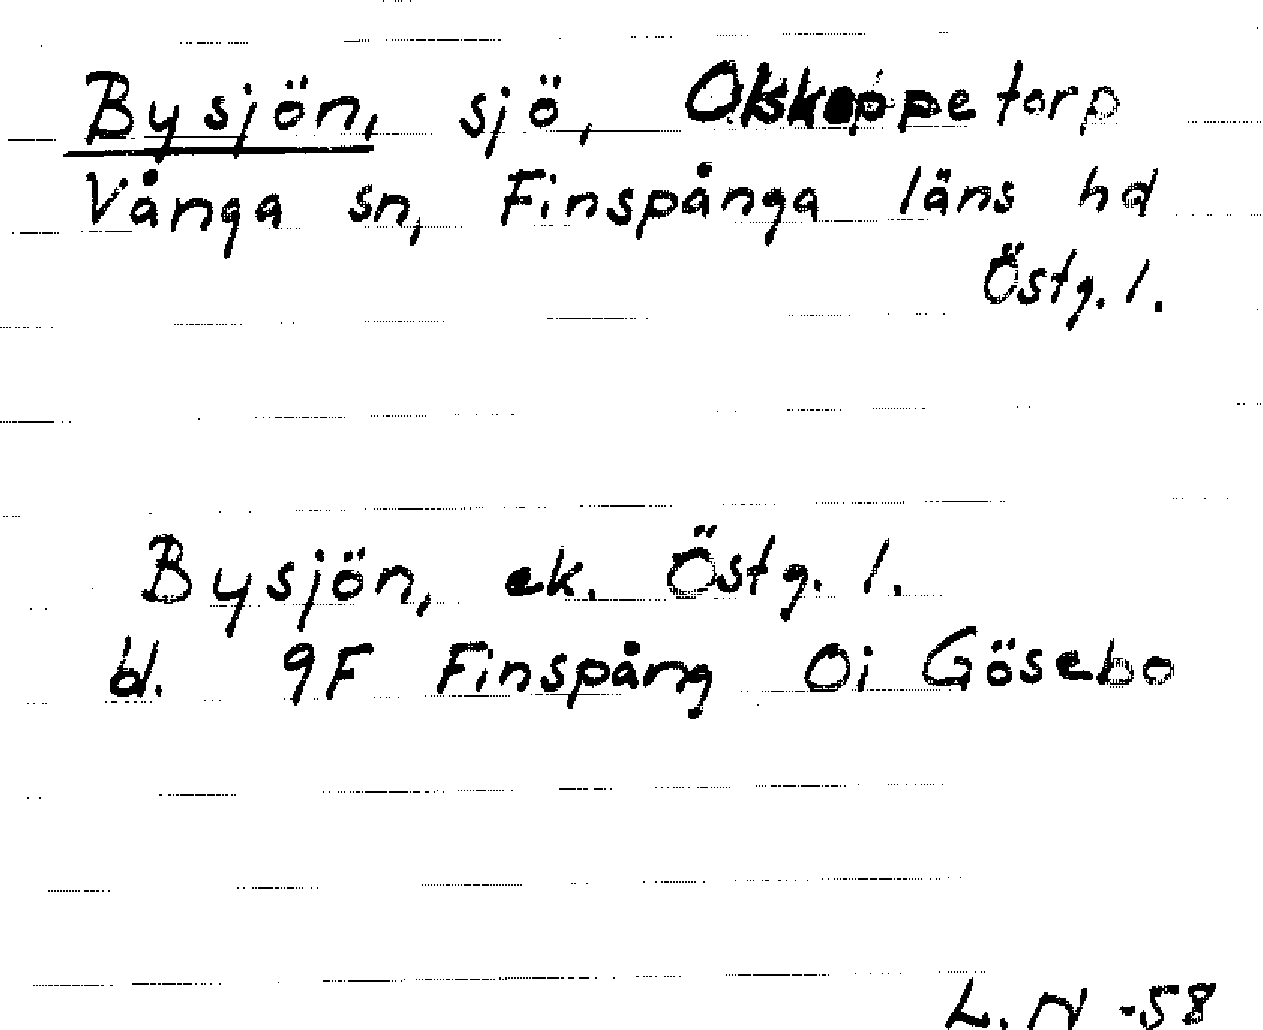 Bysjön, sjö, Okskoppetorp
Vånga sn, Finspånga läns hd
Östg. l.
Bysjön, ek. Östg. l.
bl. 9F Finspång 0i Gösebo
L. N -58